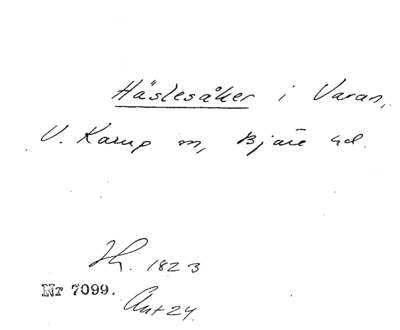 Häslesåker i Varan,
V. Karup sn, Bjäre hd.
Hs. 1823
Nr 7099.
Ant 24.